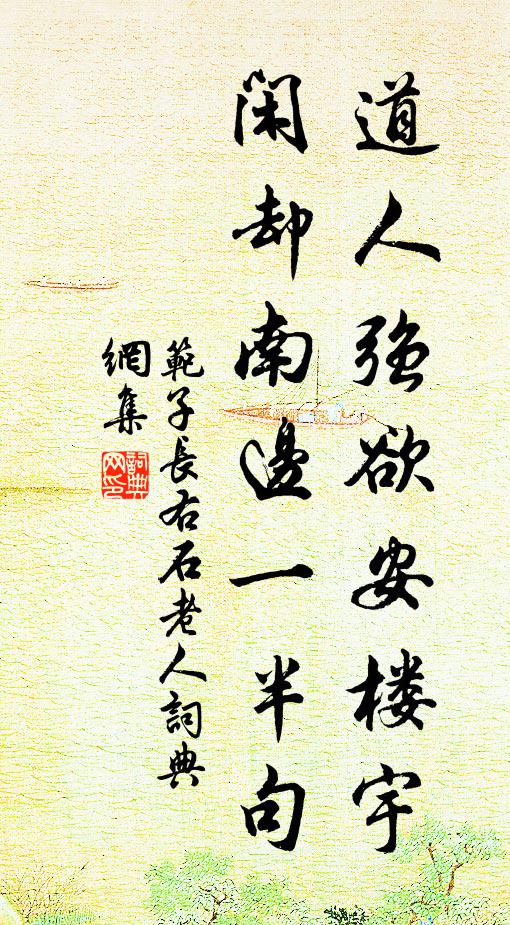 道人強欲安楼宇
閑却南邊一半句
範子長右石老人詞典
網集
詞典
网印